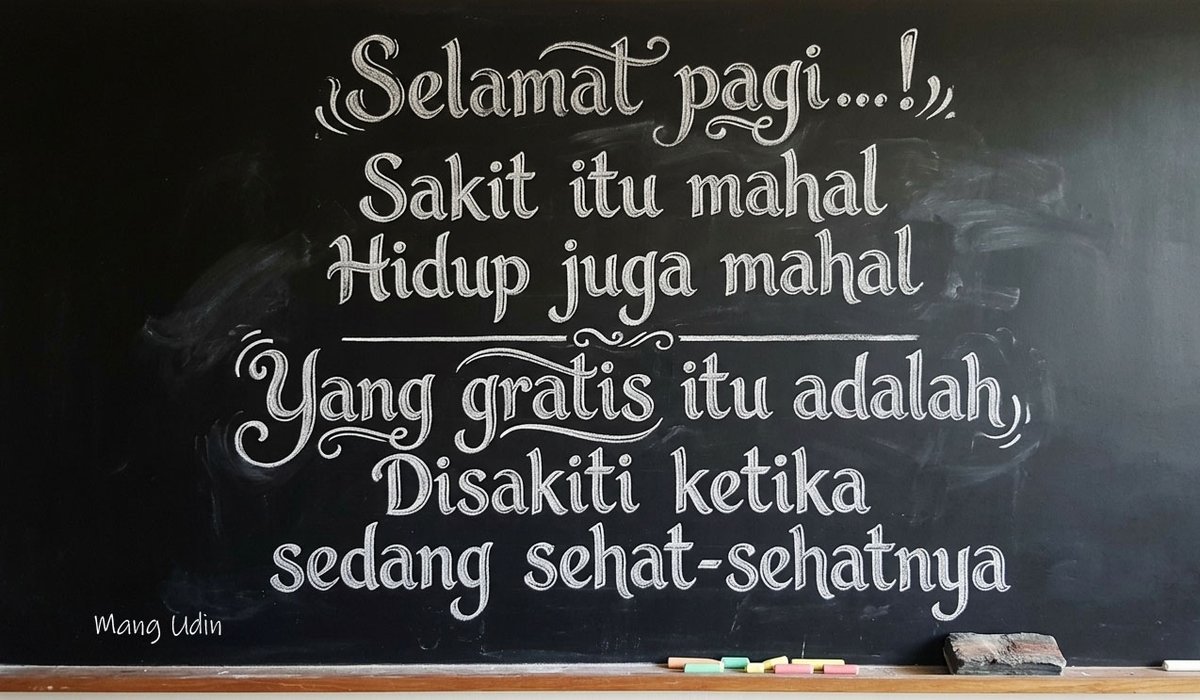 Selamat pagi...!
Sakit itu mahal
Hidup juga mahal
Yang gratis itu adalah,
Disakiti ketika
sedang sehat-sehatnya
Mang Udin